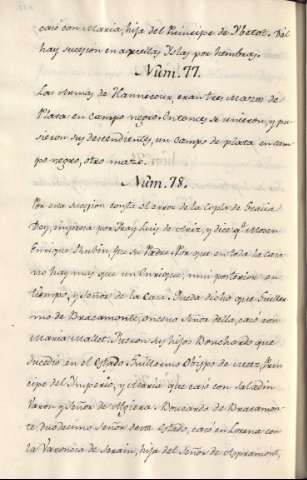 casó con Maria, hija del Principe de Ybetot. Del
hay sucesion en aquellas Yslas por hembras.
Núm. 77.
Las Armas de Hannecour, eran tres Mazos de
Plata en Campo negro. Entonces se unieron, y pu-
sieron sus descendientes, un Campo de plata en cam-
po negro, otro mazo.
Núm. 78.
Por esta sucesion consta el error de la Copla de Gracia
Dey, impresa por Fray Luis de Ariz, y dice q.e Mosen
Enrique Rubin, fue su Padre. Por que en toda la Casa
no hay mas que un Enrique, mui posterior en
tiempo, y Señor de la Casa. Queda dicho que Guiller-
mo de Bracamonte, onceno Señor della, casó con
Maria Mallet. Fueron sus hijos Bouchardo que
sucedio en el Estado, Guillermo Obispo de Metz, Prin-
cipe del Imperio, y Maria que casó con Saladin
Varon y Señor de Boucardo de Bracamon-
te duodecimo Señor deste Estado, casó en Lorena con
la Varonesa de hija del Señor de Aspramont,